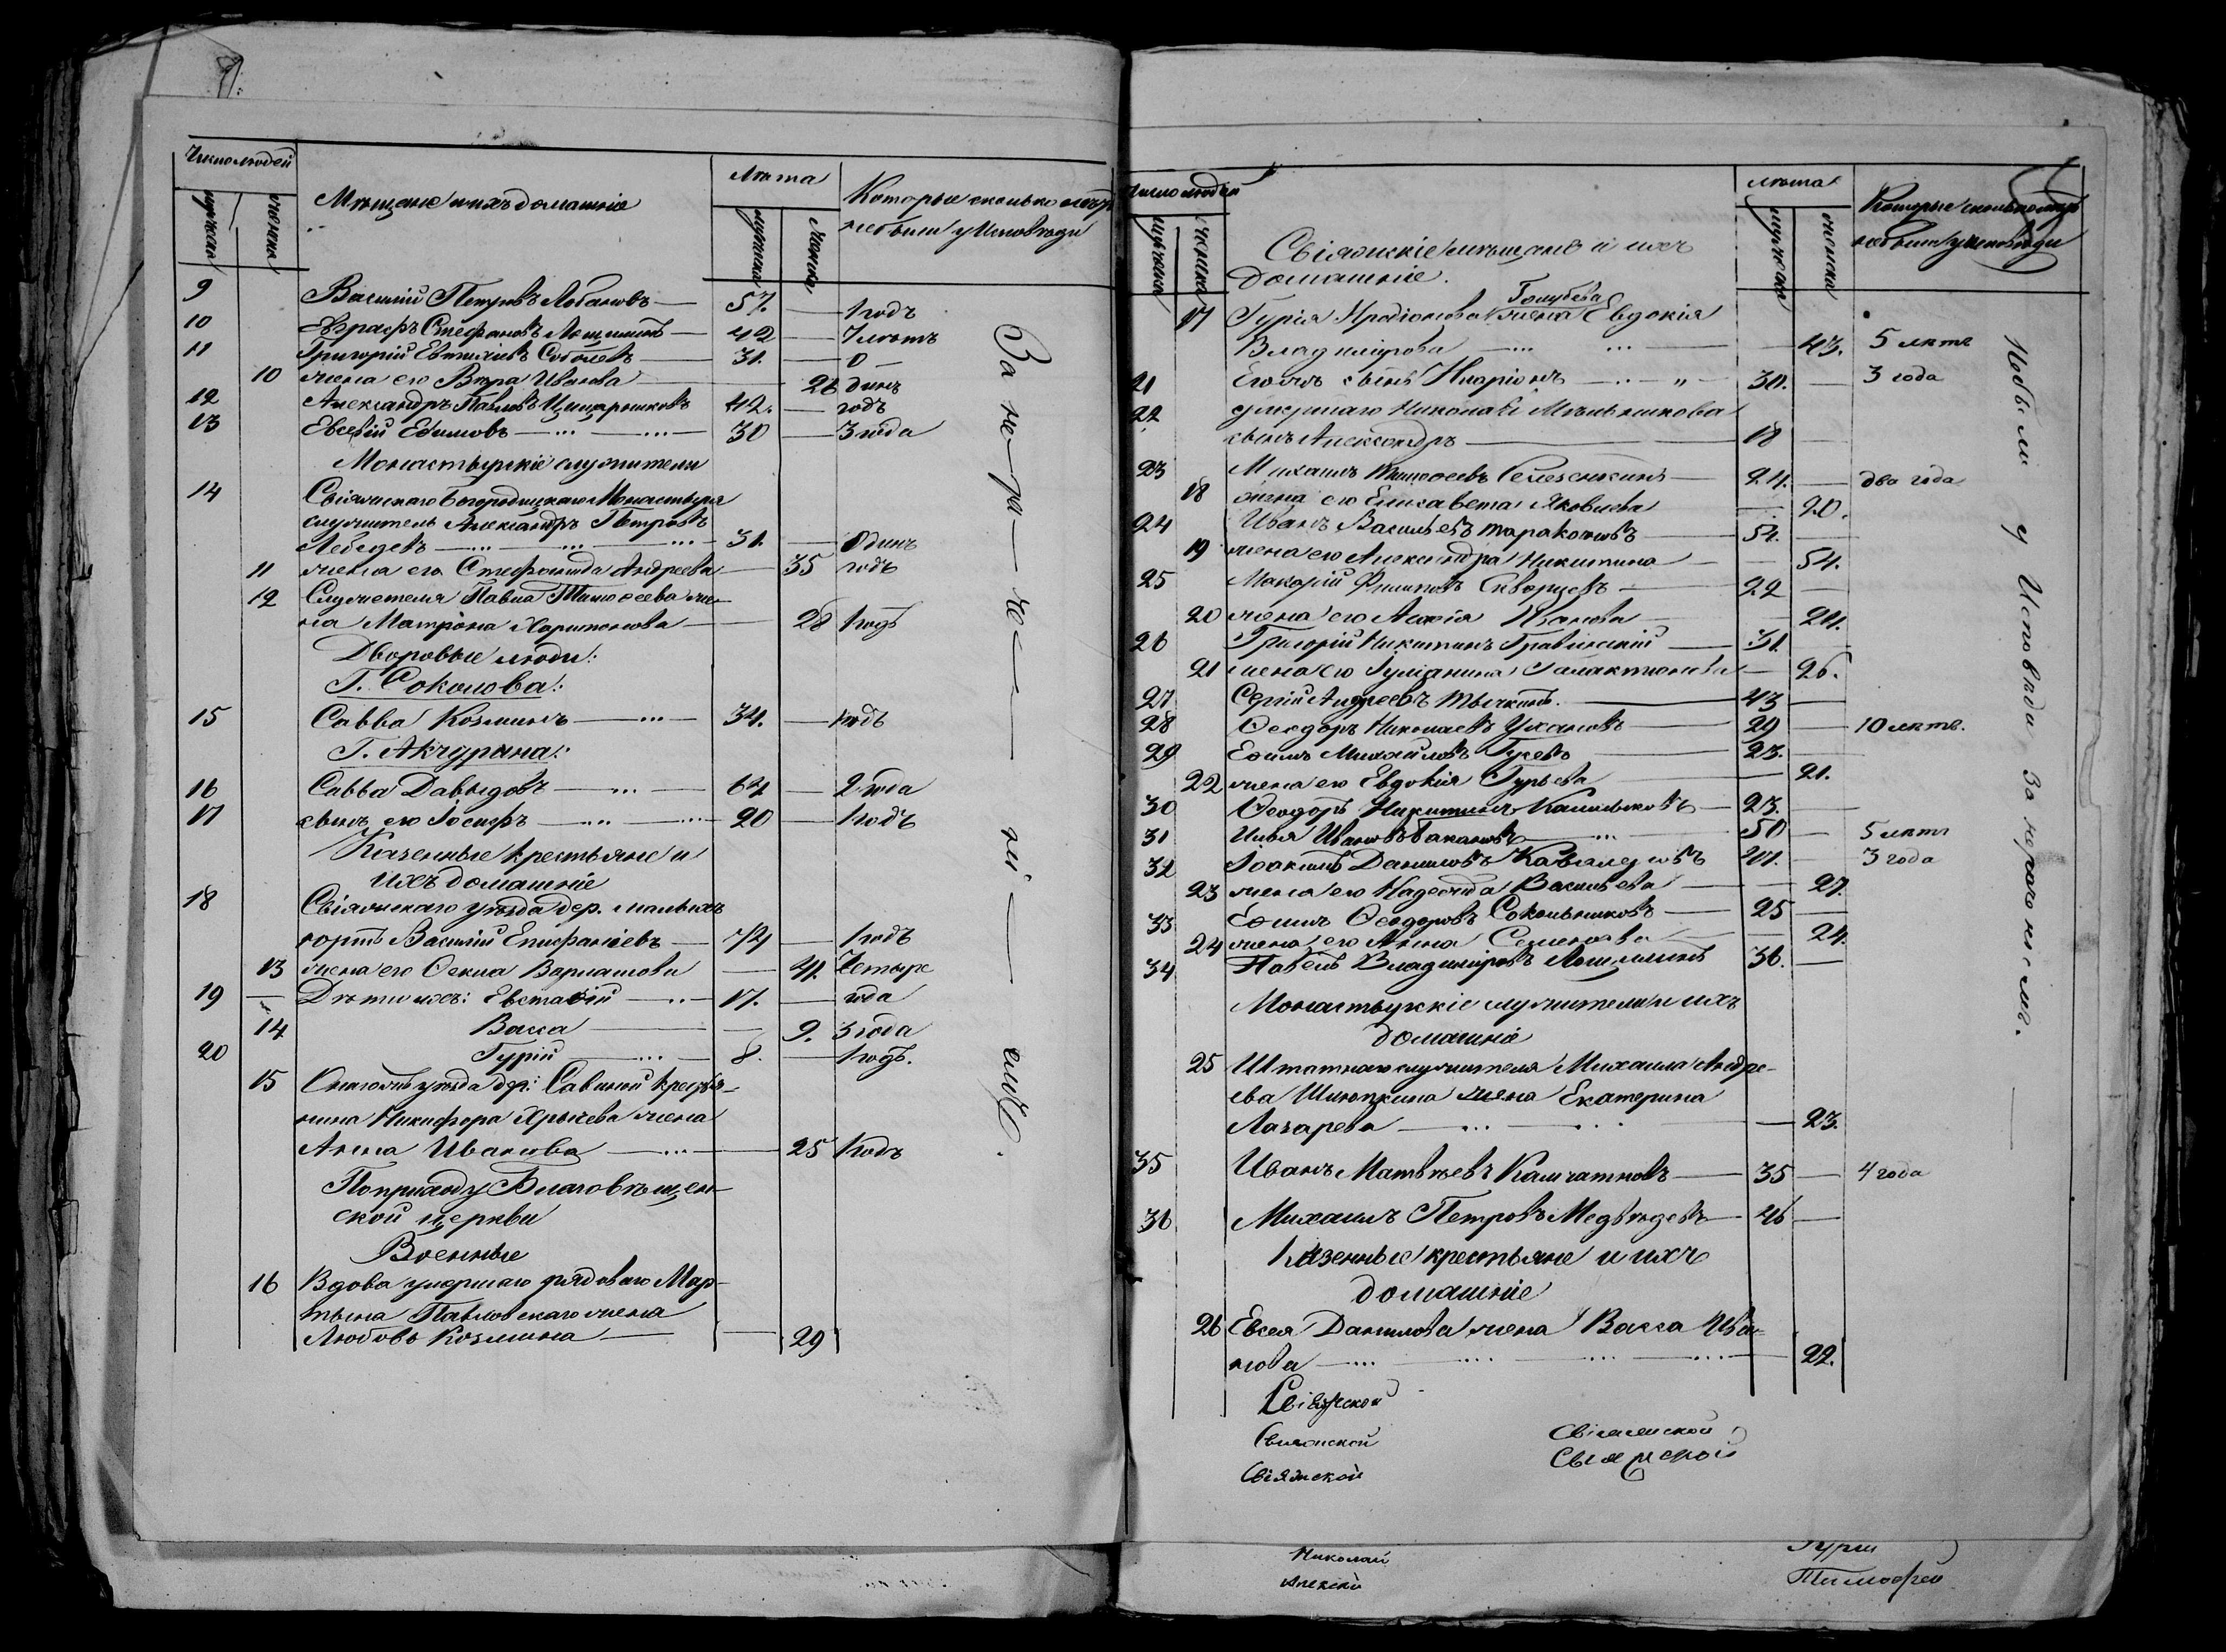 Число людей
мужеска
женска
Мѣщане и ихъ домашніе
Лѣта
мужеска
женска
Которые сколько
не были у Исповѣди
9 Василій Петровъ Лобановъ — 57. — 1 годъ
10 Евграфъ Стефановъ — 42 — 7 лѣтъ
11 Григорій Евтихіевъ Соболевъ — 31. — О-
10 жена его Вѣра Иванова — 26 динъ
12 Александръ Павловъ — 42. — годъ
13 Евсевій Ефимовъ — 30 — 3 года
Монастырскіе служители
14 Свіяжскаго Богородицкаго Монастыря
служитель Александръ Петровъ
Лебедевъ — 31. — Одинъ
11 жена его Стефанида Андреева — 35 годъ
12 Служителя Павла Тимоѳеева же-
на Матрона Харитонова — 28 1 годъ
Дворовые люди:
Г. Соколова:
15 Савва Козминъ — 34. — 1 годъ
Г. Акчурина:
16 Савва Давыдовъ — 64 — 2 года
17 сынъ его Іосифъ — 20 — 1 годъ
Казенные крестьяне и
ихъ домашніе
18 Свіяжскаго уѣзда дер. малыхъ
Василій Епифаніевъ — 74 — 1 годъ
13 жена его Ѳекла Варламова — 41. Четыре
19 Дѣти ихъ: Евстафій — 17. — года
14 Васса — 9. 3 года
20 Гурій — 8. — 1 годъ.
15 уѣзда дер: Савиной крестья-
нина Никифора жена
Анна Иванова — 25 1 годъ
По приходу Благовѣщен-
ской церкви
Военные
16 Вдова умершаго рядоваго Мар-
тына Павловскаго жена
Любовь Козмина — 29
За не-ра-че-ні-емъ.
Число людей
мужеска
женска
Свіяжскіе мѣщане и ихъ
домашніе.
лѣта
мужеска
женска
Которые сколько
не были у Исповѣди
Голубева
17 Гурія Иродіонова жена Евдокія
Владимірова — 43. 5 лѣтъ
21 Его же сынъ Иларіонъ — 30. — 3 года
22 умершаго Николая Мельникова
сынъ Александръ — 18 —
23 Михаилъ Тимоѳеевъ Селезенкинъ — 24. — два года
18 жена его Елисавета Яковлева — 20.
24 Иванъ Васильевъ Таракановъ — 54. —
19 жена его Александра Никитина — 54.
25 Макарій Филиповъ Скворцевъ — 22 —
20 жена его Иванова — 21.
26 Григорій Никитинъ — 31. —
21 жена его Іуліанина Галактіонова — 26.
27 Сергій Андреевъ Тычкинъ. — 43 —
28 Ѳеодоръ Николаевъ Ухановъ — 29 — 10 лѣтъ.
29 Ефимъ Михайловъ Гусевъ — 23. —
22 жена его Евдокія Гурьева — 21.
30 Ѳеодоръ Никитинъ Калашниковъ — 23. —
31 Илья Ивановъ Бакановъ — 50 — 5 лѣтъ
32 Іоакимъ Даниловъ — 27. — 3 года
23 жена его Надежда Васильева — 27.
33 Ефимъ Ѳеодоровъ Сокольниковъ — 25 —
24 жена его Анна Семенова — 24.
34 Павелъ Владиміровъ — 36. —
Монастырскіе служители и ихъ
домашніе
25 Штатнаго служителя Михаила Андре-
ева Шлюпкина жена Екатерина
Лазарева — 23.
35 Иванъ Матвѣевъ Камчатновъ — 35 — 4 года
36 Михаилъ Петровъ Медвѣдевъ — 46 —
Казенные крестьяне и ихъ
домашніе
26 Евсея Данилова жена Васса Ива-
нова — 22.
Не были у Исповѣди за
Свіяжской
Свіяжской Свіяжской
Свіяжской Свіяжской
Николай
Алексѣй
Гурій
Тимоѳей